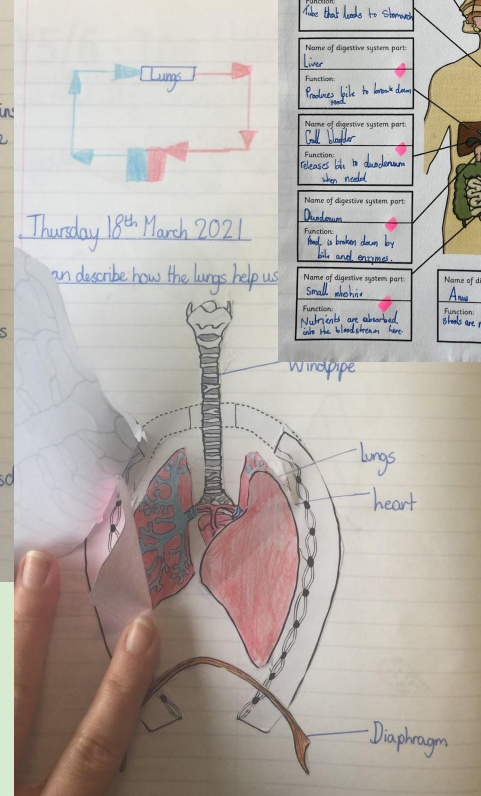 Lungs
Thursday 18th March 2021
an describe how the lungs help us
Windpipe
Lungs
heart
Diaphragm
Function:
Tube that leads to stomach
Name of digestive system part:
Liver
Function:
Produces bile to break down
food
Name of digestive system part:
Gall bladder
Function:
releases bile to duodenum
when needed
Name of digestive system part:
Duodenum
Function:
Food is broken down by
bile and enzymes.
Name of digestive system part:
Small intestine
Function:
Nutrients are absorbed
into the bloodstream here.
Name of di
Anus
Function:
Stools are r